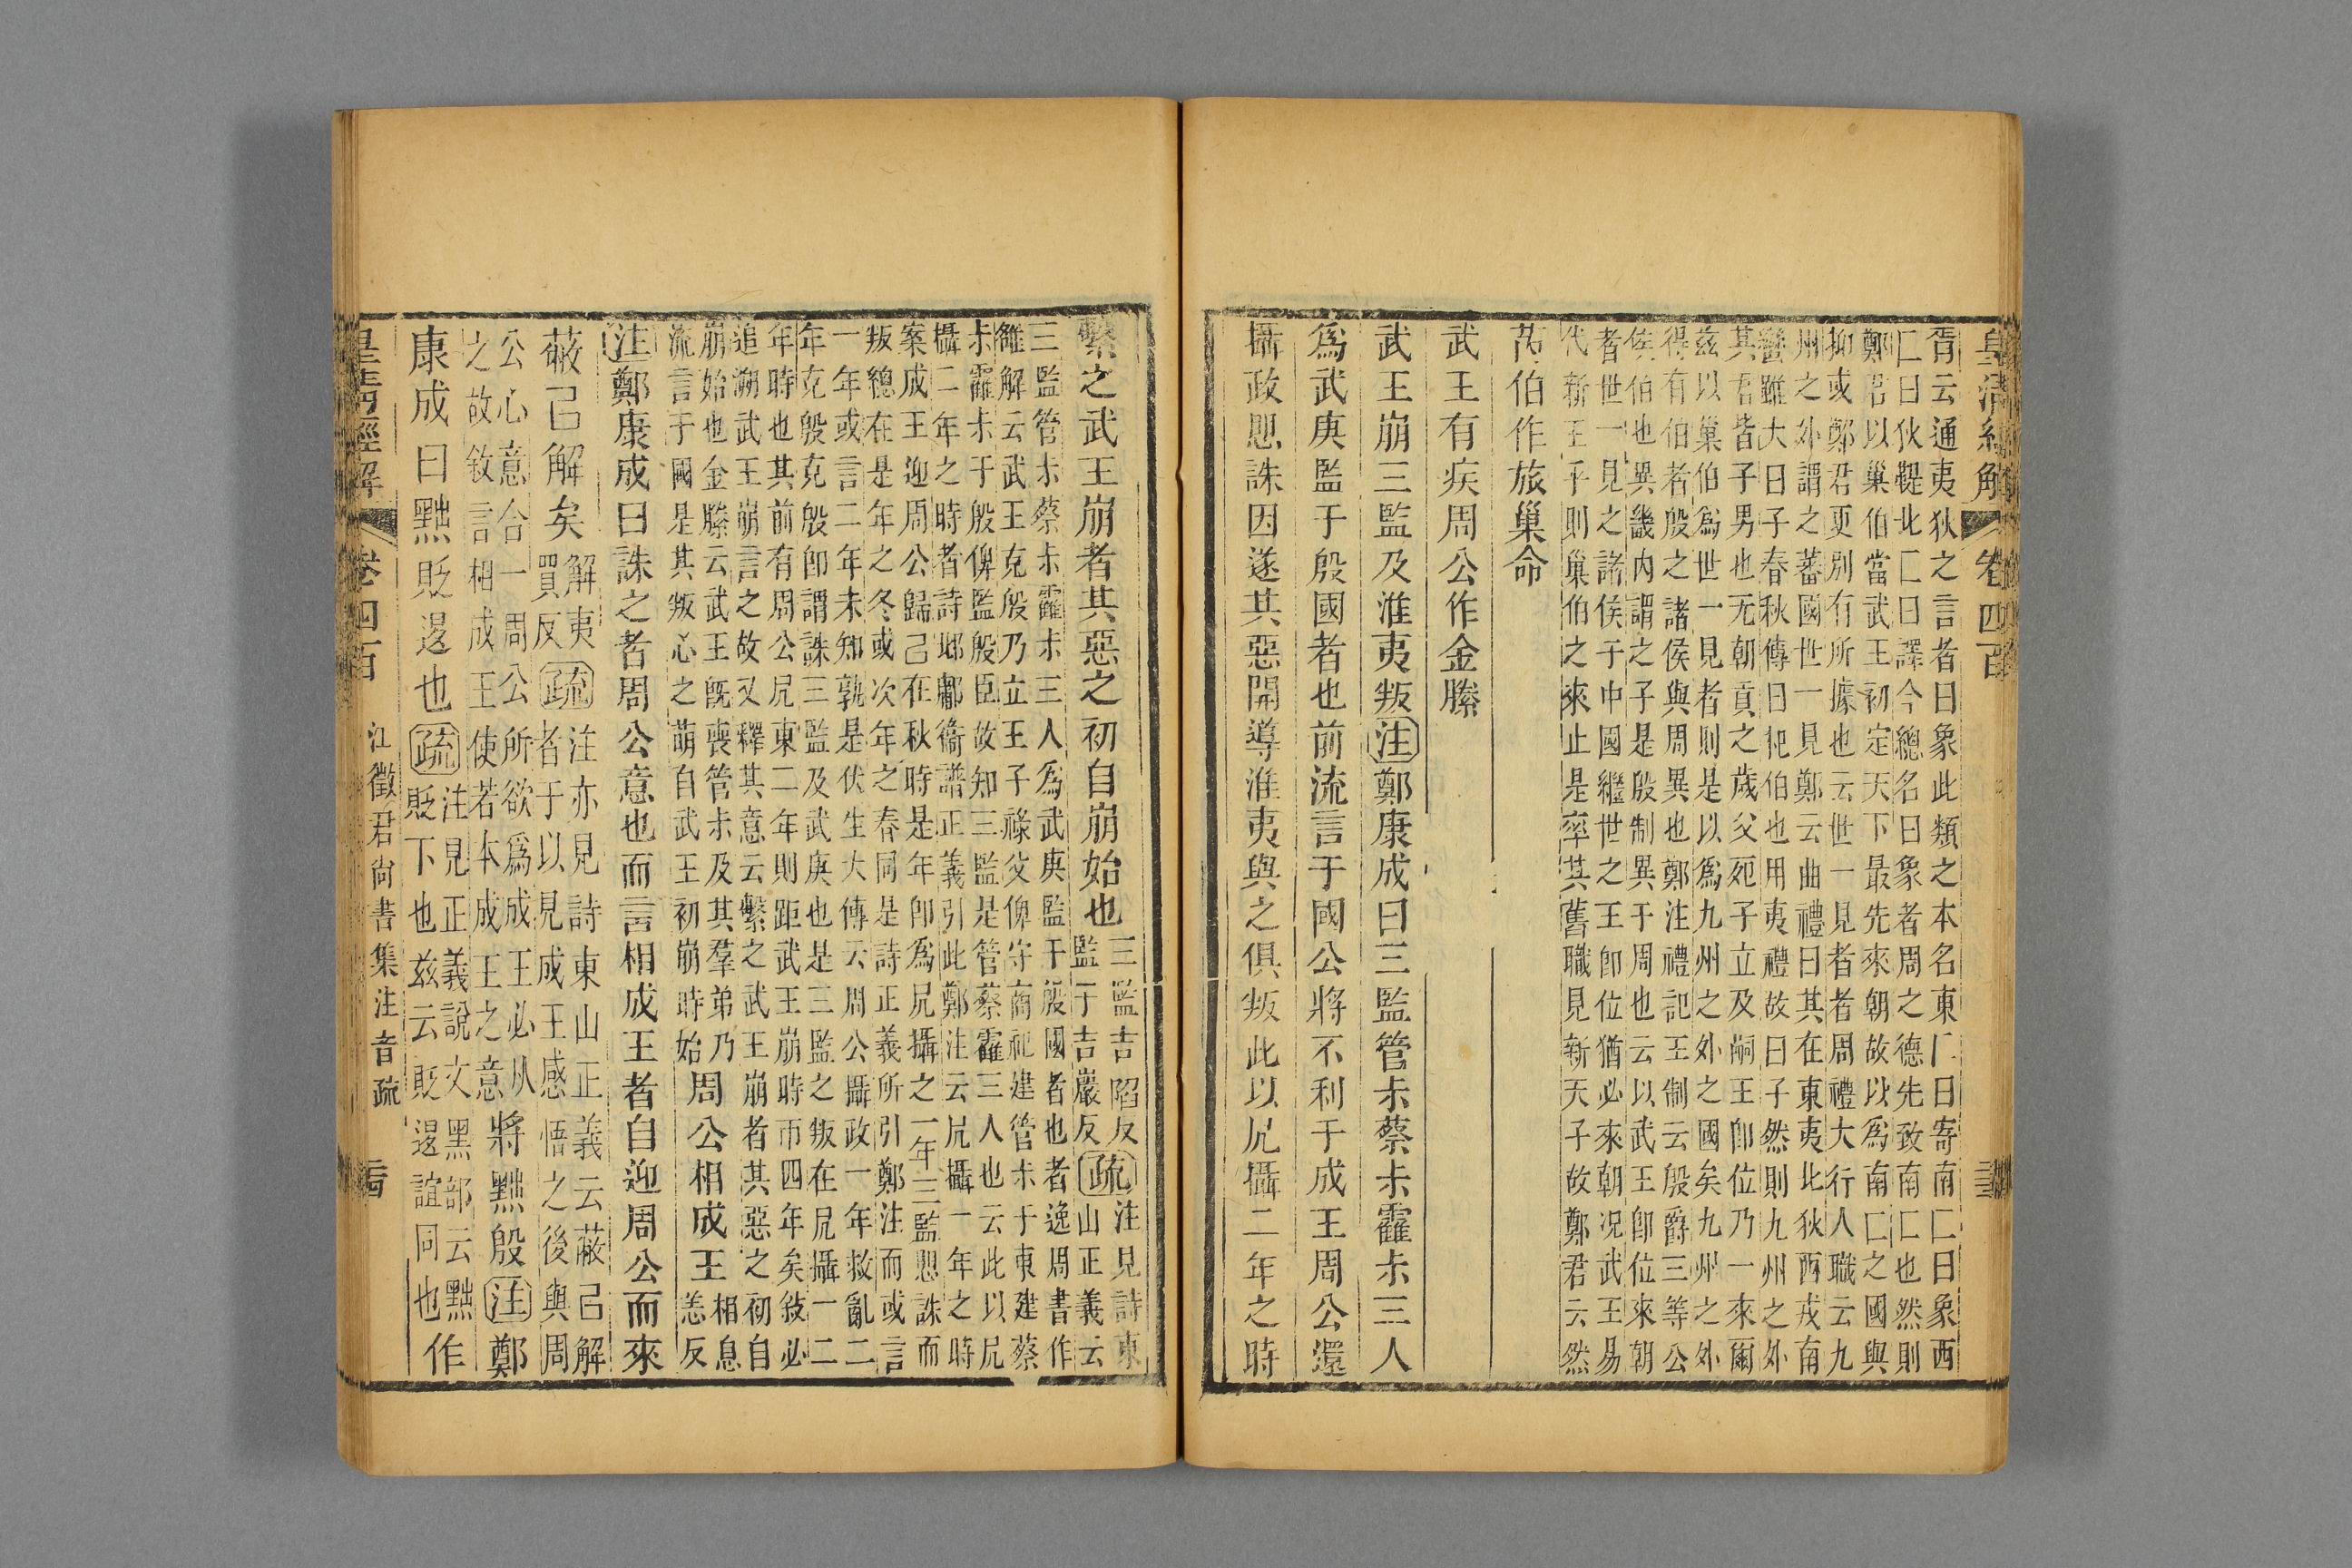 皇清經解 卷四百
胥云通夷狄之言者曰象此類之本名東匚曰寄南匚曰象西
匚曰狄鞮北匚曰譯今總名曰象者周之德先致南匚也然則
鄭君以巢伯當武王初定天下最先來朝故以爲南匚之國與
抑或鄭君更別有所據也云世一見者者周禮大行人職云九
州之外謂之蕃國世一見鄭云曲禮曰其在東夷北狄西戎南
蠻雖大曰子春秋傳曰杞伯也用夷禮故曰子然則九州之外
其君皆子男也无朝貢之歲父死子立及嗣王卽位乃一來爾
玆以巢伯爲世一見者則是以爲九州之外之國矣九州之外
得有伯者殷之諸侯與周異也鄭注禮記王制云殷爵三等公
侯伯也異畿內謂之子是殷制異于周也云以武王卽位來朝
者世一見之諸侯于中國繼世之王卽位猶必來朝況武王易
代新王乎則巢伯之來止是率其舊職見新天子故鄭君云然
芮伯作旅巢命
武王有疾周公作金縢
武王崩三監及淮夷叛注鄭康成曰三監管尗蔡尗霍尗三人
爲武庚監于殷國者也前流言于國公將不利于成王周公還
攝政思誅因遂其惡開導淮夷與之俱叛此以凥攝二年之時
繫之武王崩者其惡之初自崩始也三監吉陷反疏注見詩東
監于吉嚴反山正義云
三監管尗蔡尗霍尗三人爲武庚監于殷國者也者逸周書作
雒解云武王克殷乃立王子祿父俾守商祀建管尗于東建蔡
尗霍尗于殷俾監殷臣故知三監是管蔡霍三人也云此以凥
攝二年之時者詩邶鄘衞譜正義引此鄭注云凥攝一年之時
案成王迎周公歸己在秋時是年卽爲凥攝之一年三監思誅而
叛總在是年之冬或次年之春同是詩正義所引鄭注而或言
一年或言二年未知孰是伏生大傳云周公攝政一年救亂二
年克殷克殷卽謂誅三監及武庚也是三監之叛在凥攝一二
年時也其前有周公凥東二年則距武王崩時帀四年矣敍必
追溯武王崩言之故又釋其意云繫之武王崩者其惡之初自
崩始也金縢云武王旣喪管尗及其羣弟乃
流言于國是其叛心之萌自武王初崩時始周公相成王相息
恙反
注鄭康成曰誅之者周公意也而言相成王者自迎周公而來
蔽已解矣解夷疏注亦見詩東山正義云蔽已解
買反者于以見成王感悟之後與周
公心意合一周公所欲爲成王必从
之故敘言相成王使若本成王之意將黜殷注鄭
康成曰黜貶退也疏注見正義說文黑部云黜
貶下也玆云貶退誼同也作
皇清經解 卷四百 江徵君尚書集注音疏